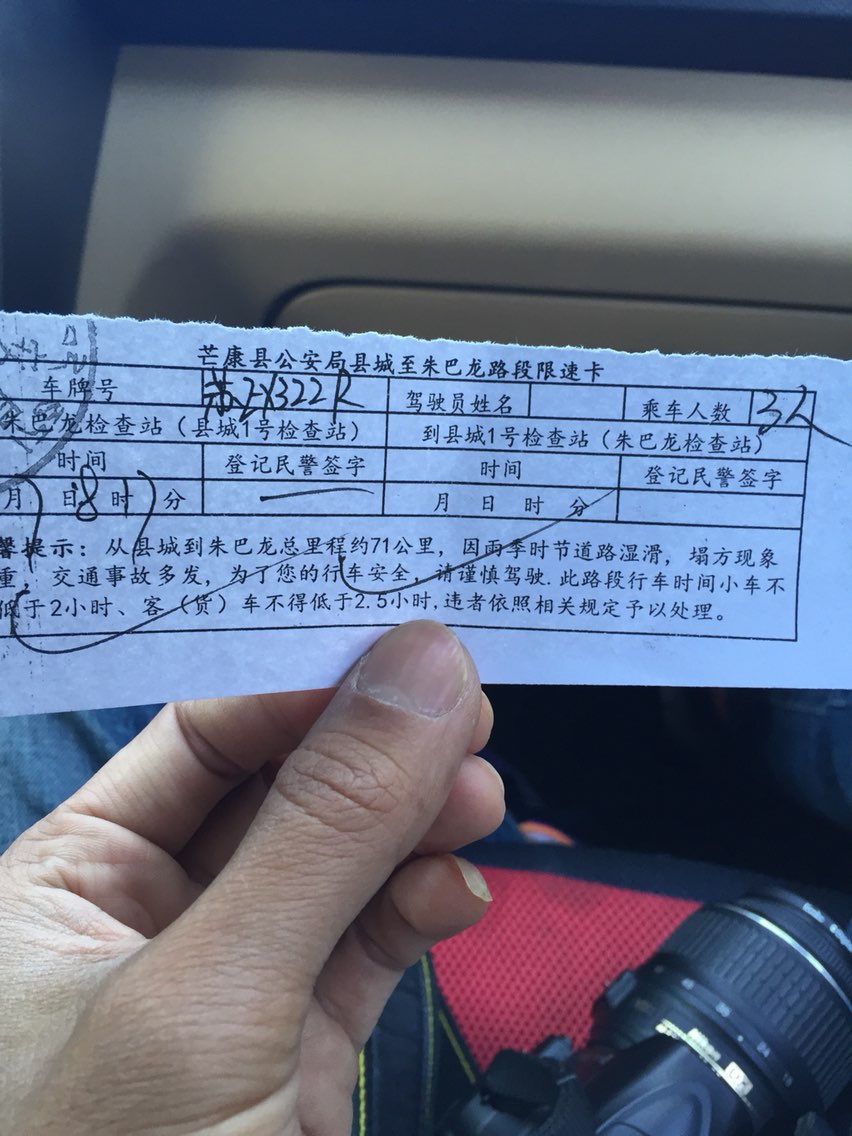 芒康县公安局县城至朱巴龙路段限速卡
车牌号 2X322R 驾驶员姓名 乘车人数 3人
朱巴龙检查站（县城1号检查站） 到县城1号检查站（朱巴龙检查站）
时间 登记民警签字 时间 登记民警签字
月 日 8 时 分 月 日 时 分
馨提示：从县城到朱巴龙总里程约71公里，因雨季时节道路湿滑，塌方现象
重，交通事故多发，为了您的行车安全，请谨慎驾驶.此路段行车时间小车不
低于2小时、客（货）车不得低于2.5小时,违者依照相关规定予以处理。
Nikon